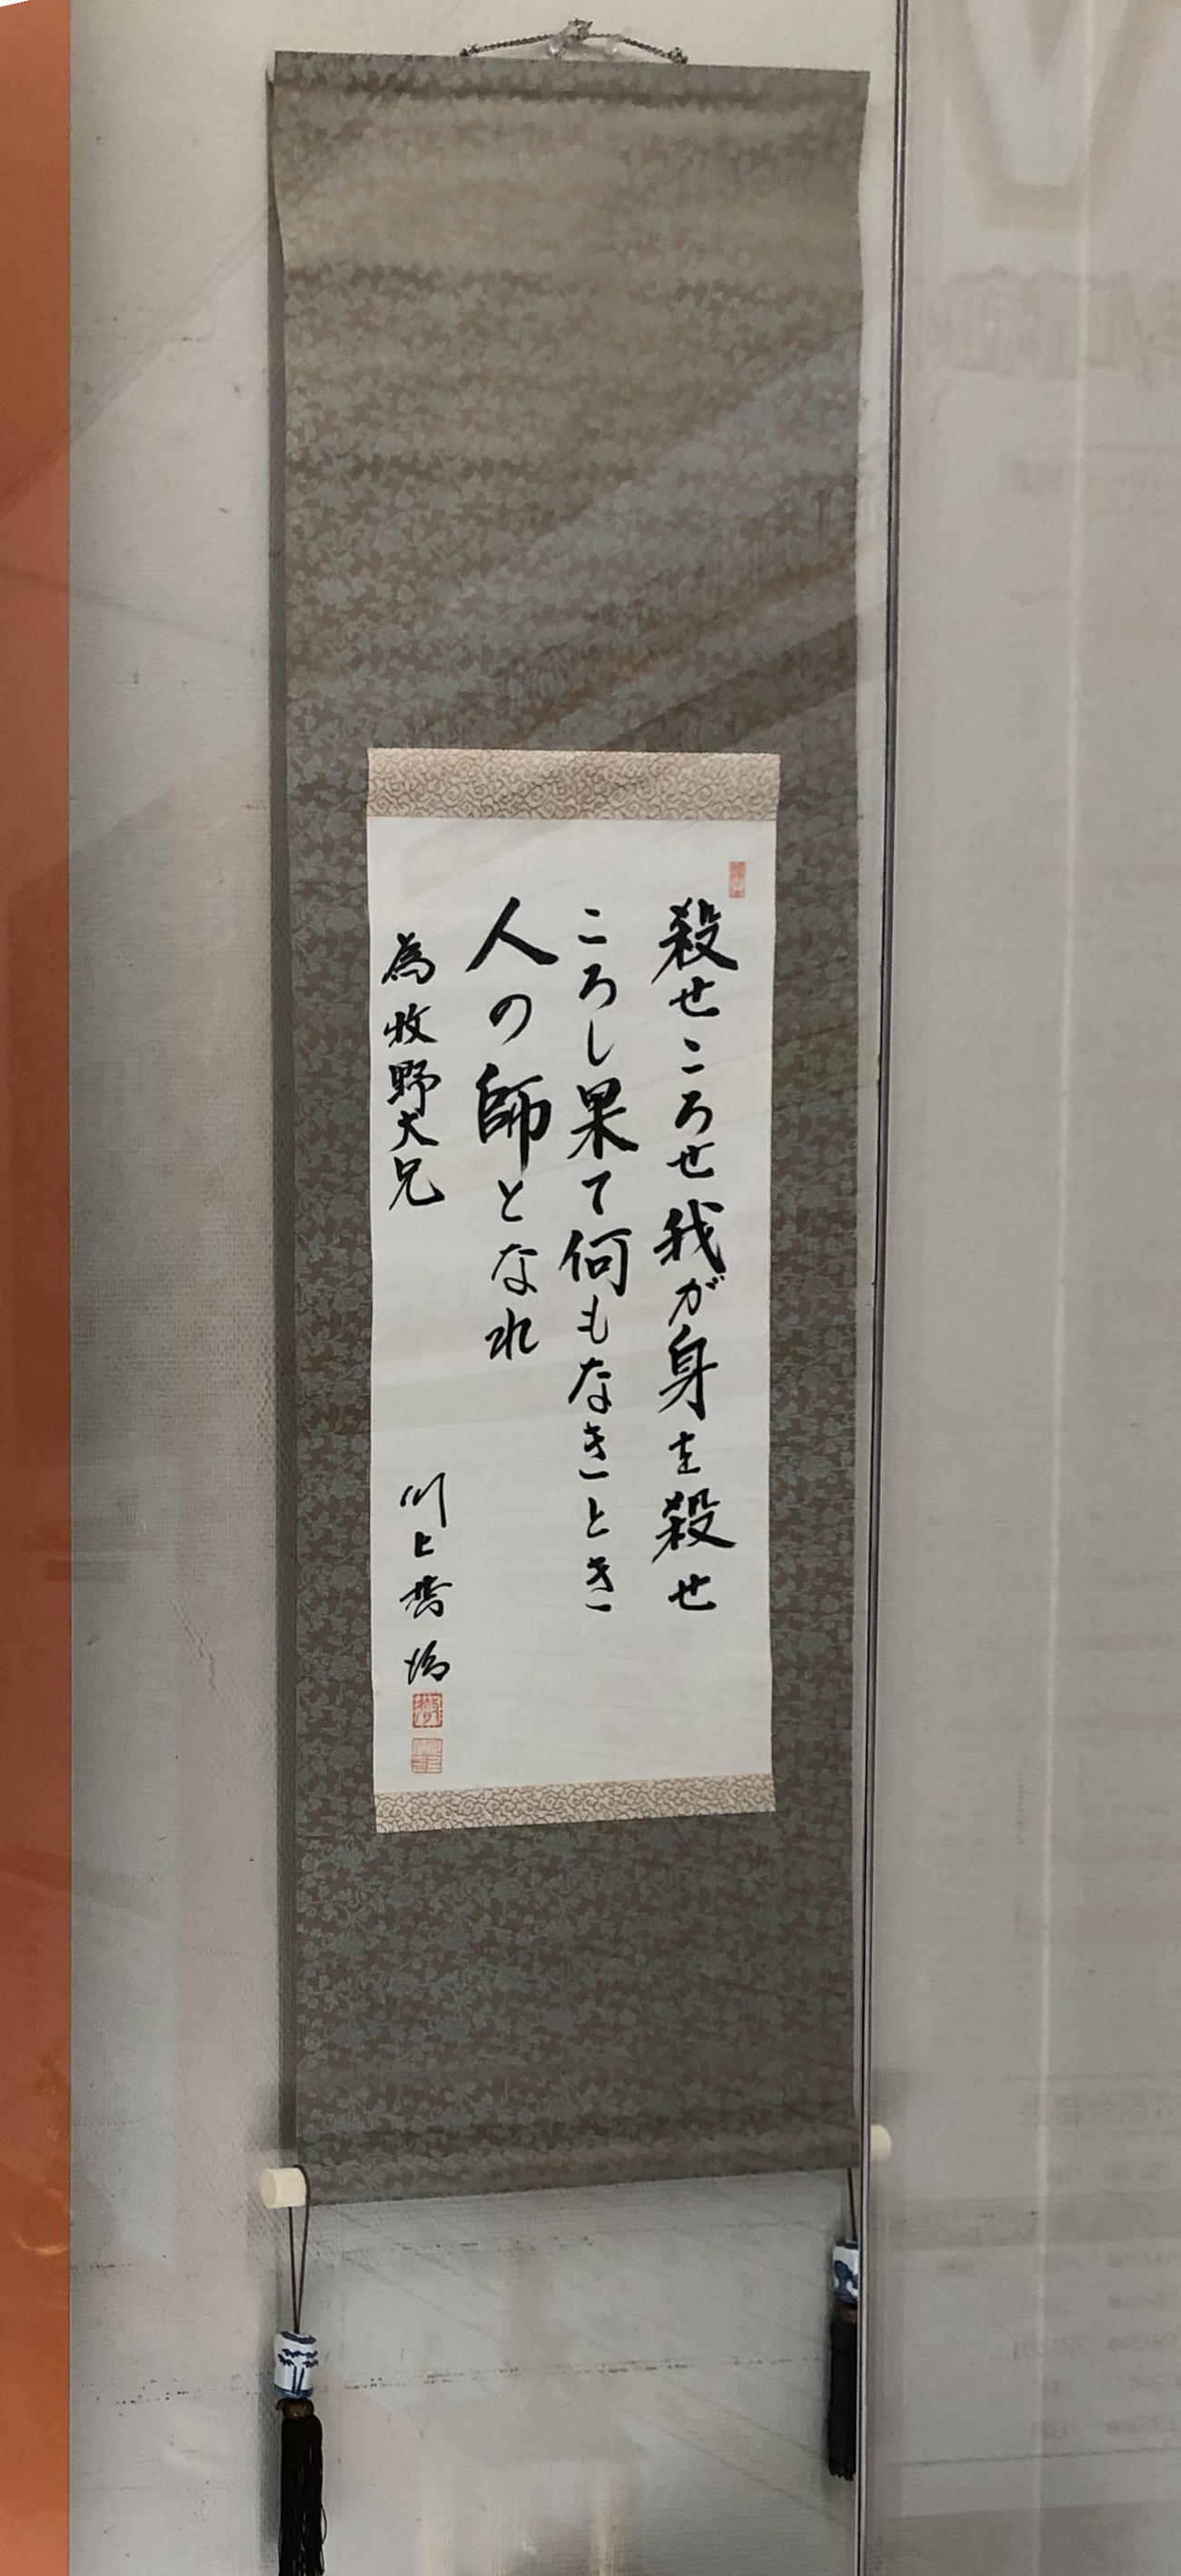 殺せころせ我が身を殺せ
ころし果て何もなきとき
人の師となれ
為牧野大兄
川上